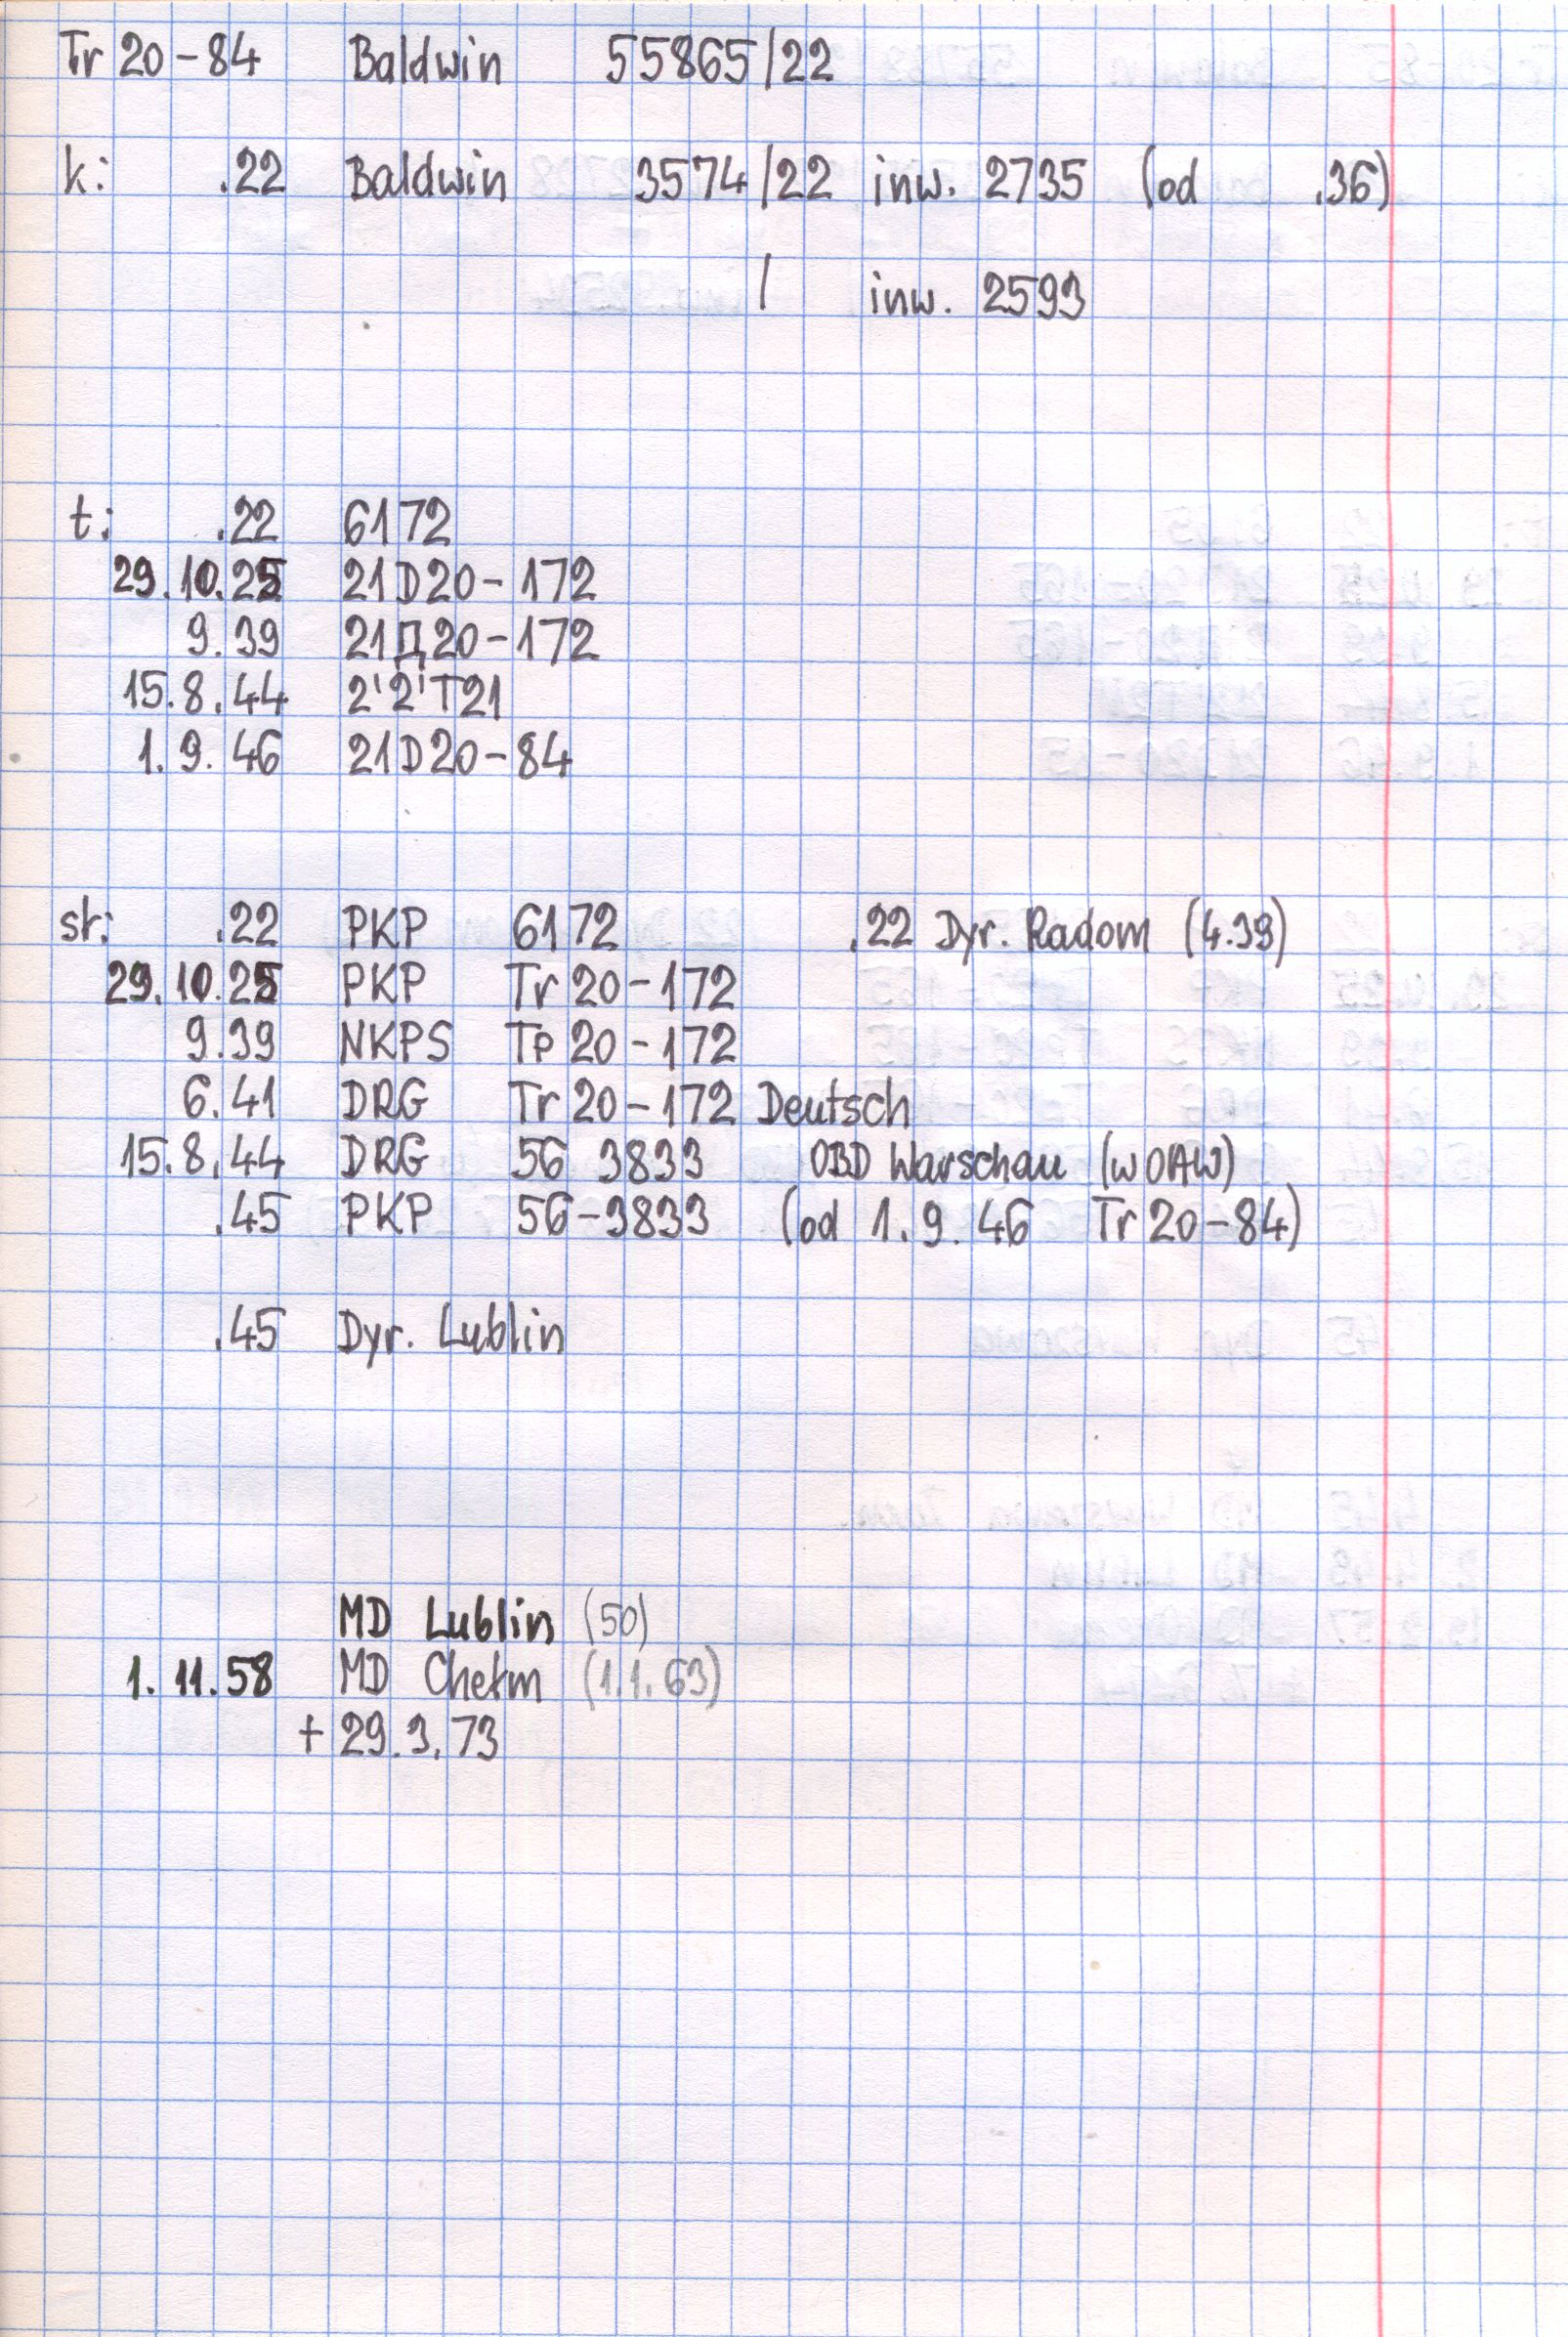 Tr 20-84 Baldwin 55865/22
k: .22 Baldwin 3574/22 inw. 2735 (od .36)
/ inw. 2593
t: .22 6172
29.10.25 21D20-172
9.39 21Д20-172
15.8.44 2'2'T21
1.9.46 21D20-84
st: .22 PKP 6172 .22 Dyr. Radom (4.39)
29.10.25 PKP Tr 20-172
9.39 NKPS Tp 20-172
6.41 DRG Tr 20-172 Deutsch
15.8.44 DRG 56 3833 OBD Warschau (WOAW)
.45 PKP 56-3833 (od 1.9.46 Tr 20-84)
.45 Dyr. Lublin
MD Lublin (50)
1.11.58 MD Chełm (1.1.63)
+ 29.3.73